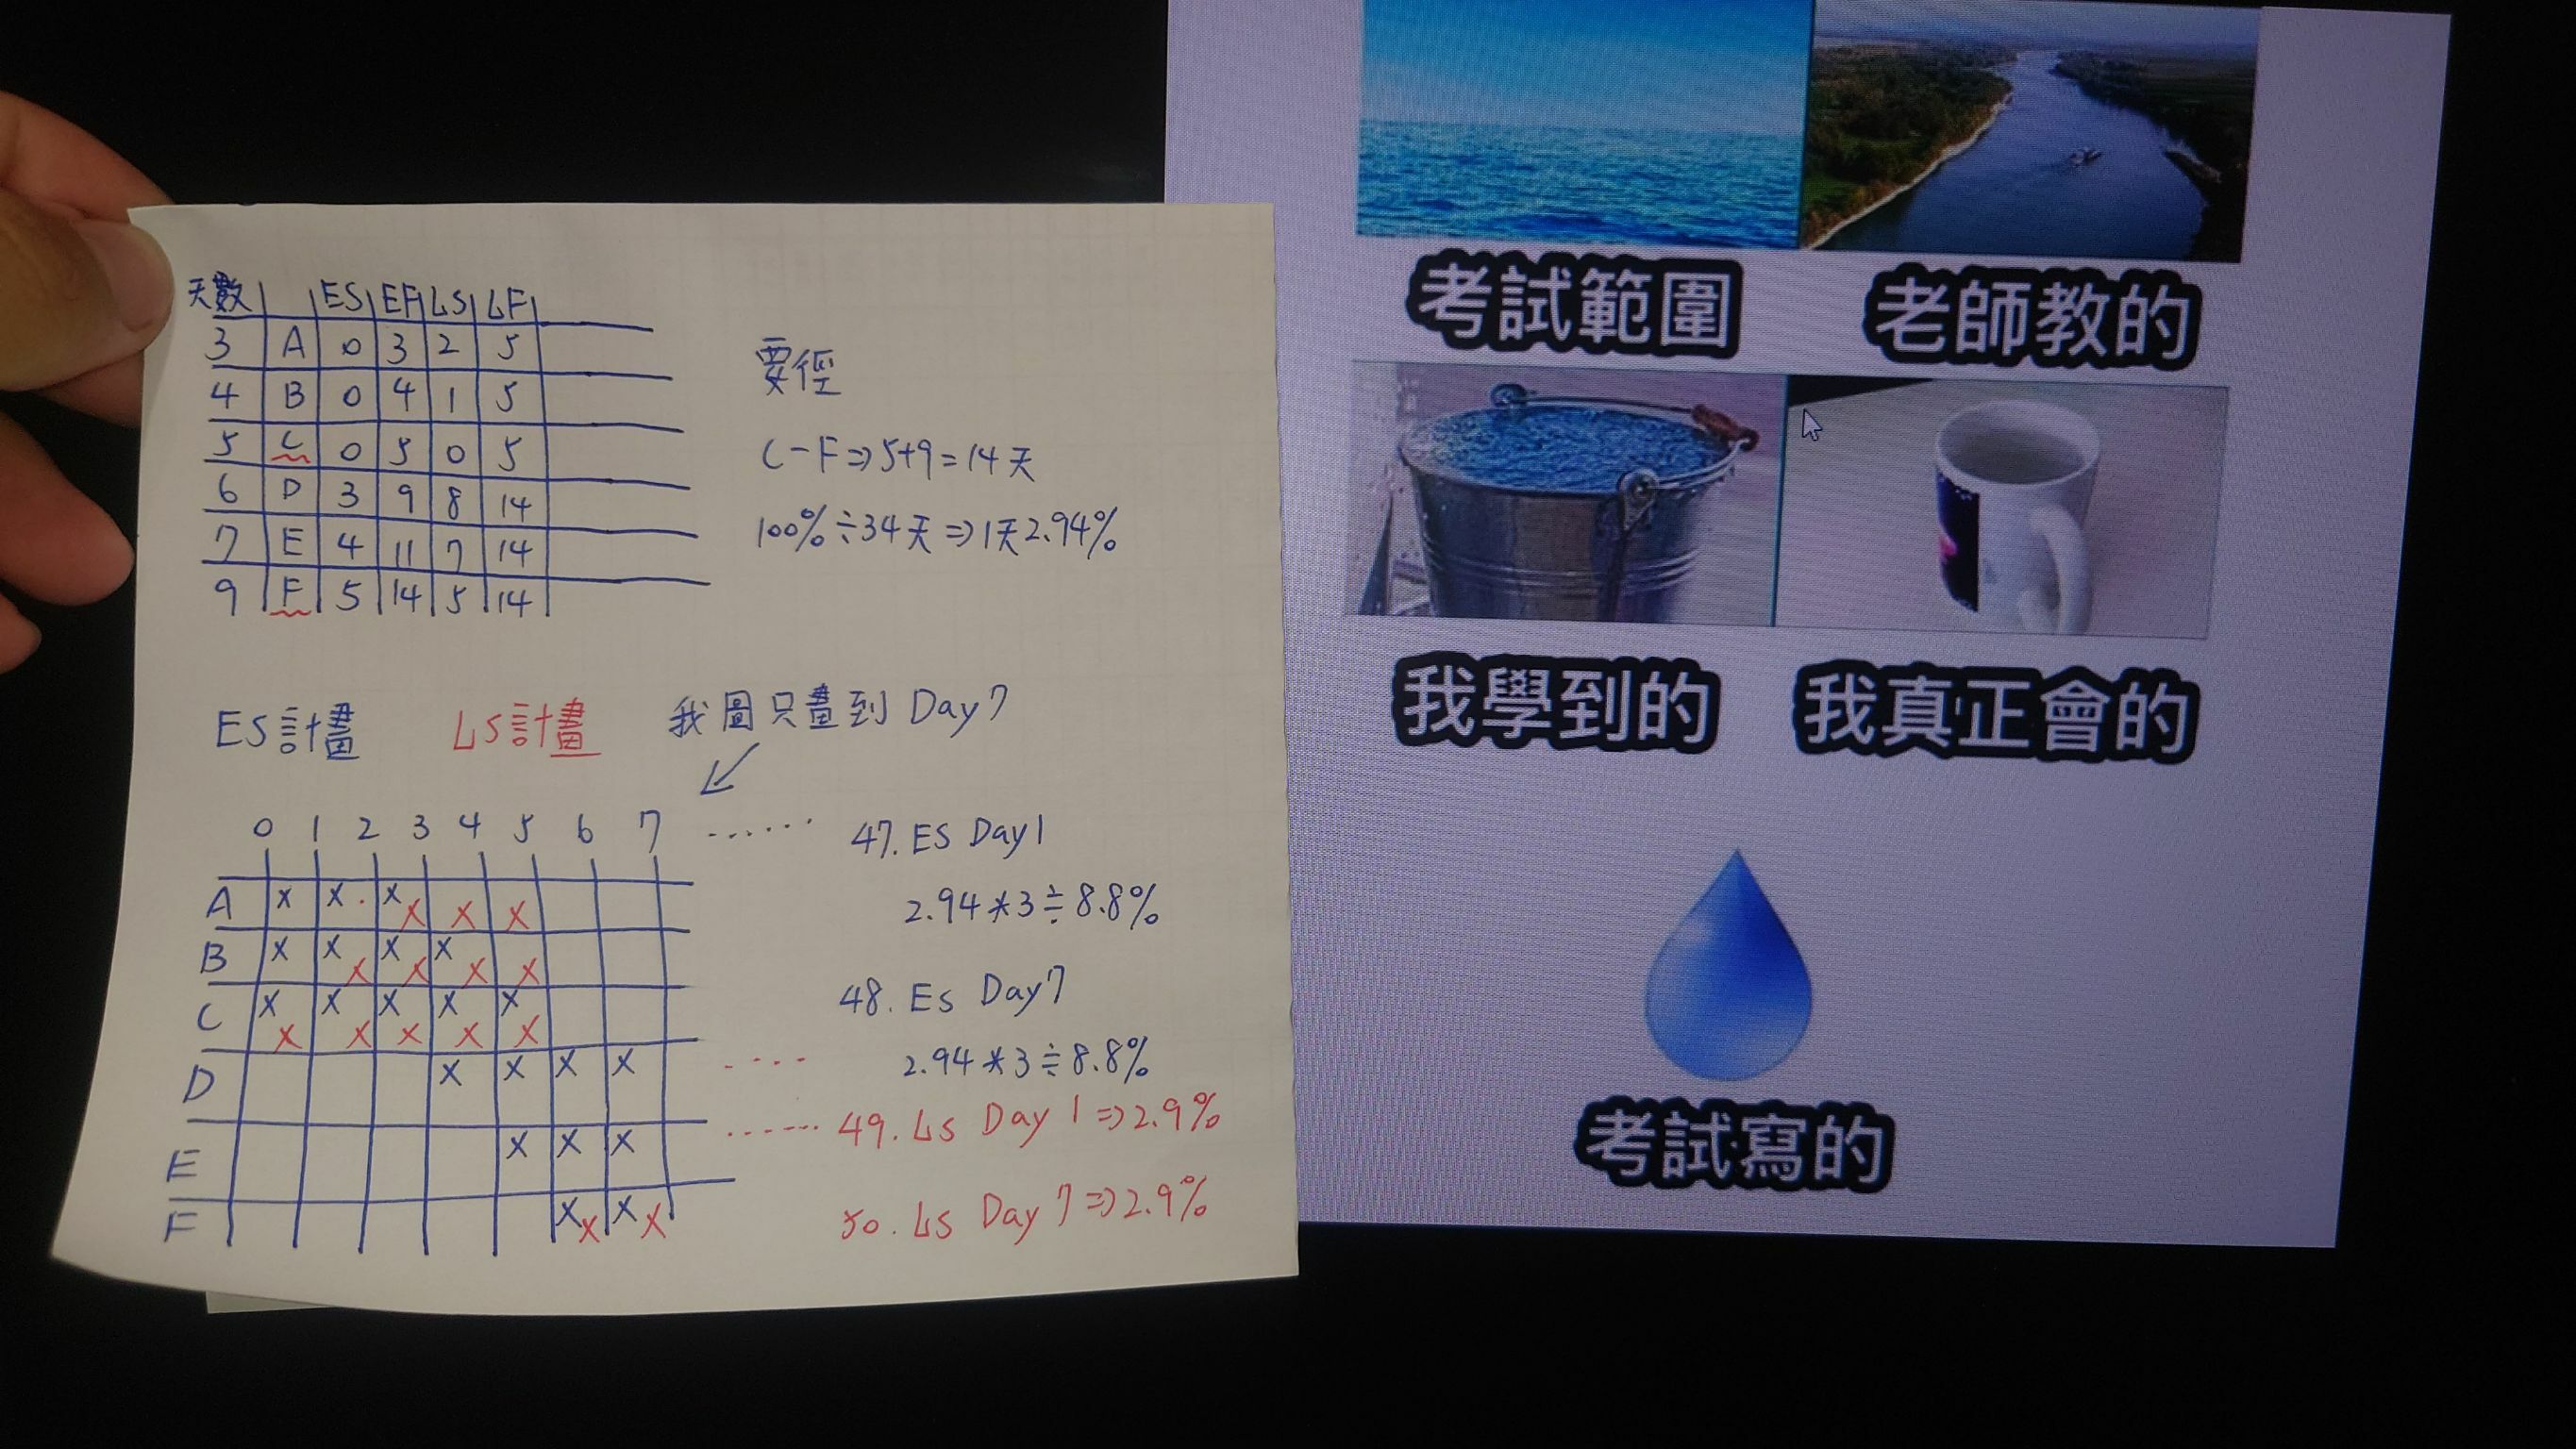 天數 ES EF LS LF
3 A 0 3 2 5
4 B 0 4 1 5
5 C 0 5 0 5
6 D 3 9 8 14
7 E 4 11 7 14
9 F 5 14 5 14
要徑
C-F⇒5+9=14天
100%÷34天⇒1天2.94%
ES計畫 LS計畫 我圖只畫到 Day7
0 1 2 3 4 5 6 7 ......
A x x . x x x x
B x x x x x x x x
C x x x x x x x x x x
D x x x x ....
E x x x ......
F x x x x
47. ES Day1
2.94*3≑8.8%
48. Es Day7
2.94*3≑8.8%
49. Ls Day 1⇒2.9%
50. Ls Day 7⇒2.9%
考試範圍 老師教的
我學到的 我真正會的
考試寫的